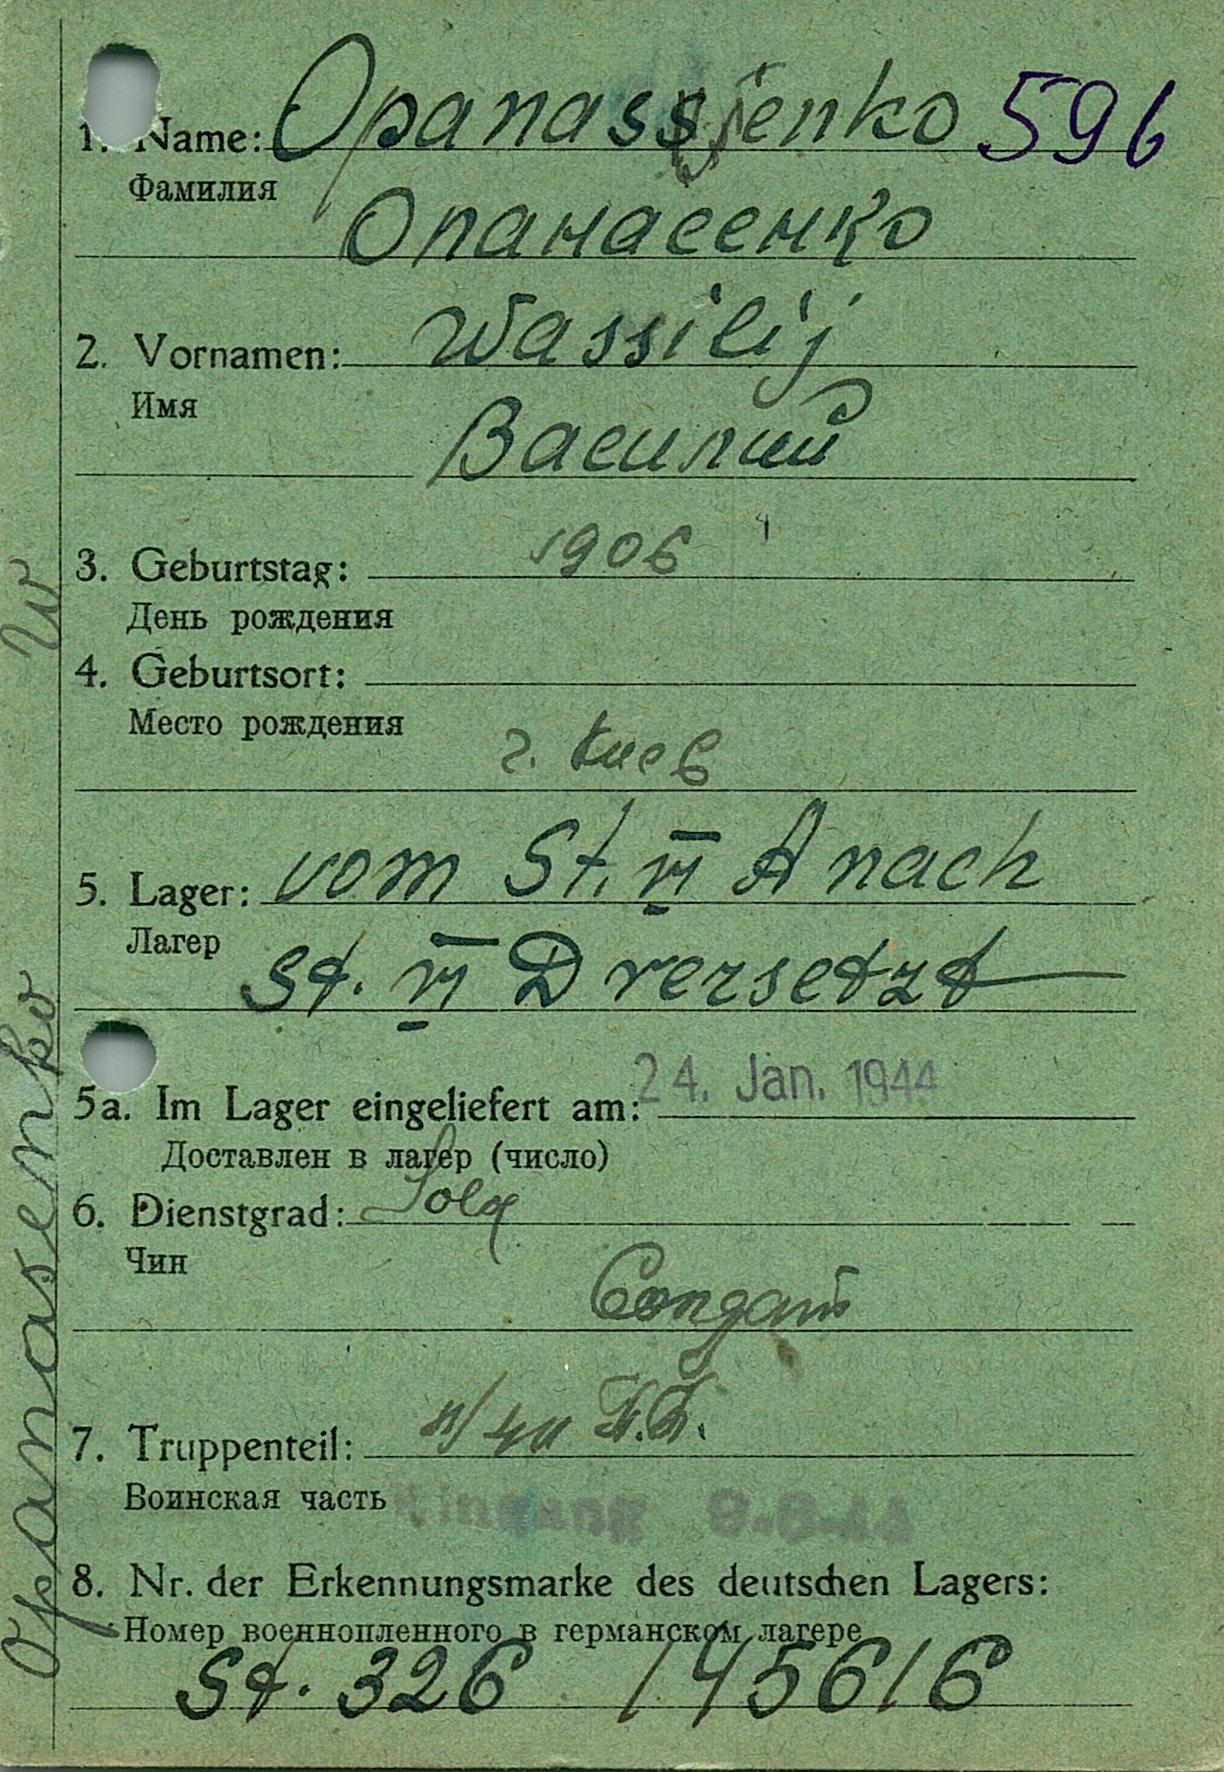 1. Name: Opanassjenko 596
Фамилия
Опанасенко
2. Vornamen: Wassilij
Имя
Василий
3. Geburtstag: 1906
День рождения
4. Geburtsort:
Место рождения
г. Киев
5. Lager: vom St. VI A nach
Лагер
St. VI D versetzt
5a. Im Lager eingeliefert am: 24. Jan. 1944
Доставлен в лагер (число)
6. Dienstgrad: Sold
Чин
Солдат
7. Truppenteil:
Воинская часть
Eingang
8. Nr. der Erkennungsmarke des deutschen Lagers:
Номер военнопленного в германском лагере
St. 326 / 45616
Opanasenko W